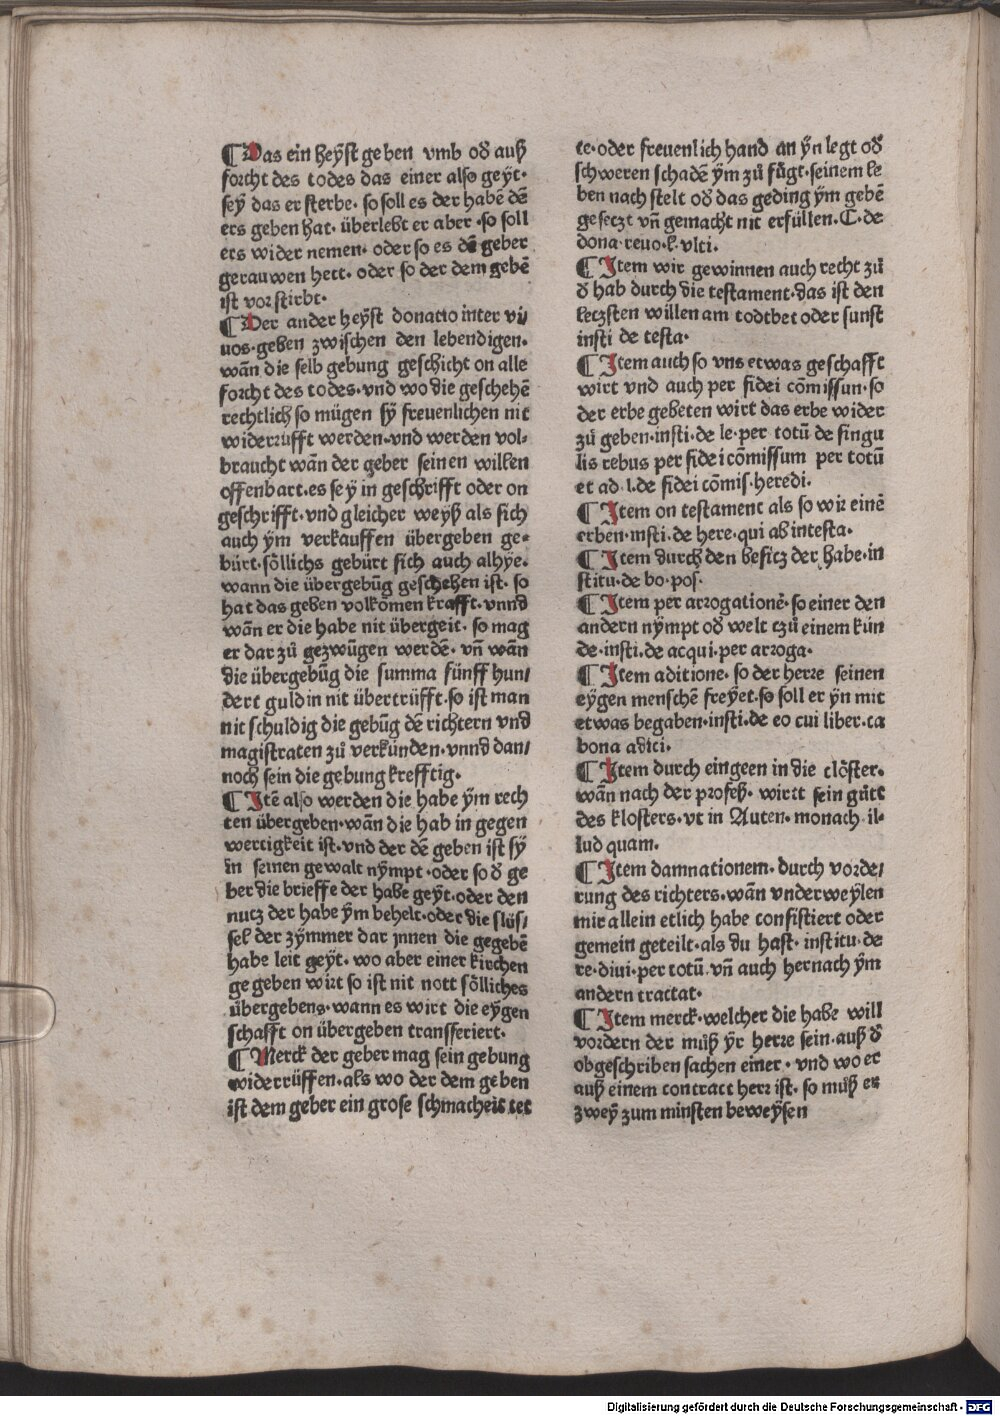 ¶Das ein heÿst geben vmb oď auß
forcht des todes das einer also geÿt·
seÿ das er sterbe· so soll es der habē dē
ers geben hat· überlebt er aber ·so soll
ers wider nemen· oder so es dē geber
gerauwen hett· oder so der dem gebē
ist vor stirbt·
¶Der ander heÿst donatio inter vi/
uos·geben zwischen den lebendigen·
wān die selb gebung geschicht on alle
forcht des todes·vnd wo die geschehē
rechtlich so mügen sÿ freuenlichen nit
widerrüfft werden·vnd werden vol-
braucht wān der geber seinen willen
offenbart·es seÿ in geschrifft oder on
geschrifft·vnd gleicher weÿß als sich
auch ÿm verkauffen übergeben ge-
bürt·söllichs gebürt sich auch alhÿe·
wann die übergebūg geschehen ist· so
hat das geben volkōmen krafft·vnnd
wān er die habe nit übergeit· so mag
er dar zů gezwūgen werdē· vñ wān
die übergebūg die summa fünff hun/
dert guldin nit übertrüfft·so ist man
nit schuldig die gebūg dē richtern vnd
magistraten zů verkünden·vnnd dan/
noch sein die gebung krefftig·
¶Itē also werden die habe ÿm rech
ten übergeben·wān die hab in gegen
wertigkeit ist·vnd der dē geben ist sÿ
in seinen gewalt nÿmpt ·oder so ď ge
ber die brieffe der habe geÿt·oder den
nutz der habe ÿm behelt·oder die slüs/
sel der zÿmmer dar jnnen die gegebē
habe leit geÿt· wo aber einer kirchen
ge geben wirt so ist nit nott söllliches
übergebens·wann es wirt die eÿgen
schafft on übergeben transferiert·
¶Merck der geber mag sein gebung
widerrüffen·als wo der dem geben
ist dem geber ein grose schmacheit tet
te·oder freuenlich hand an ÿn legt oď
schweren schadē ÿm zů fügt·seinem le
ben nach stelt oď das geding ÿm gebē
gesetzt vñ gemacht nit erfüllen·C·de
dona·reuo·l·vlti·
¶Item wir gewinnen auch recht zů
ď hab durch die testament·das ist den
letzsten willen am todtbet oder sunst
insti de testa·
¶Item auch so vns etwas geschafft
wirt vnd auch per fidei cōmissun·so
der erbe gebeten wirt das erbe wider
zů geben·insti·de le·per totū de singu
lis rebus per fidei cōmissum per totū
et ad l·de fidei cōmis·heredi·
¶Item on testament als so wir einē
erben·insti·de here·qui ab intesta·
¶Item durch den besitz der habe·in
stitu·de bo·pos·
¶Item per arrogationē·so einer den
andern nÿmpt oď welt tzů einem kün
de·insti·de acqui·per arroga·
¶Item aditione· so der herre seinen
eÿgen menschē freÿet·so soll er ÿn mit
etwas begaben·insti·de eo cui liber·ca
bona adici·
¶Item durch eingeen in die clöster·
wān nach der profeß· wirtt sein gütt
des klosters·vt in Auten·monach·il-
lud quam·
¶Item damnationem·durch vorde/
rung des richters·wān vnderweÿlen
mir allein etlich habe confistiert oder
gemein geteilt·als du hast· institu·de
re·diui·per totū·vñ auch hernach ÿm
andern tractat·
¶Item merck·welcher die habe will
vordern der můß ÿr herre sein·auß ď
obgeschriben sachen einer· vnd wo er
auß einem contract herr ist· so můß er
zweÿ zum minsten beweÿsen
Digitalisierung gefördert durch die Deutsche Forschungsgemeinschaft - DFG